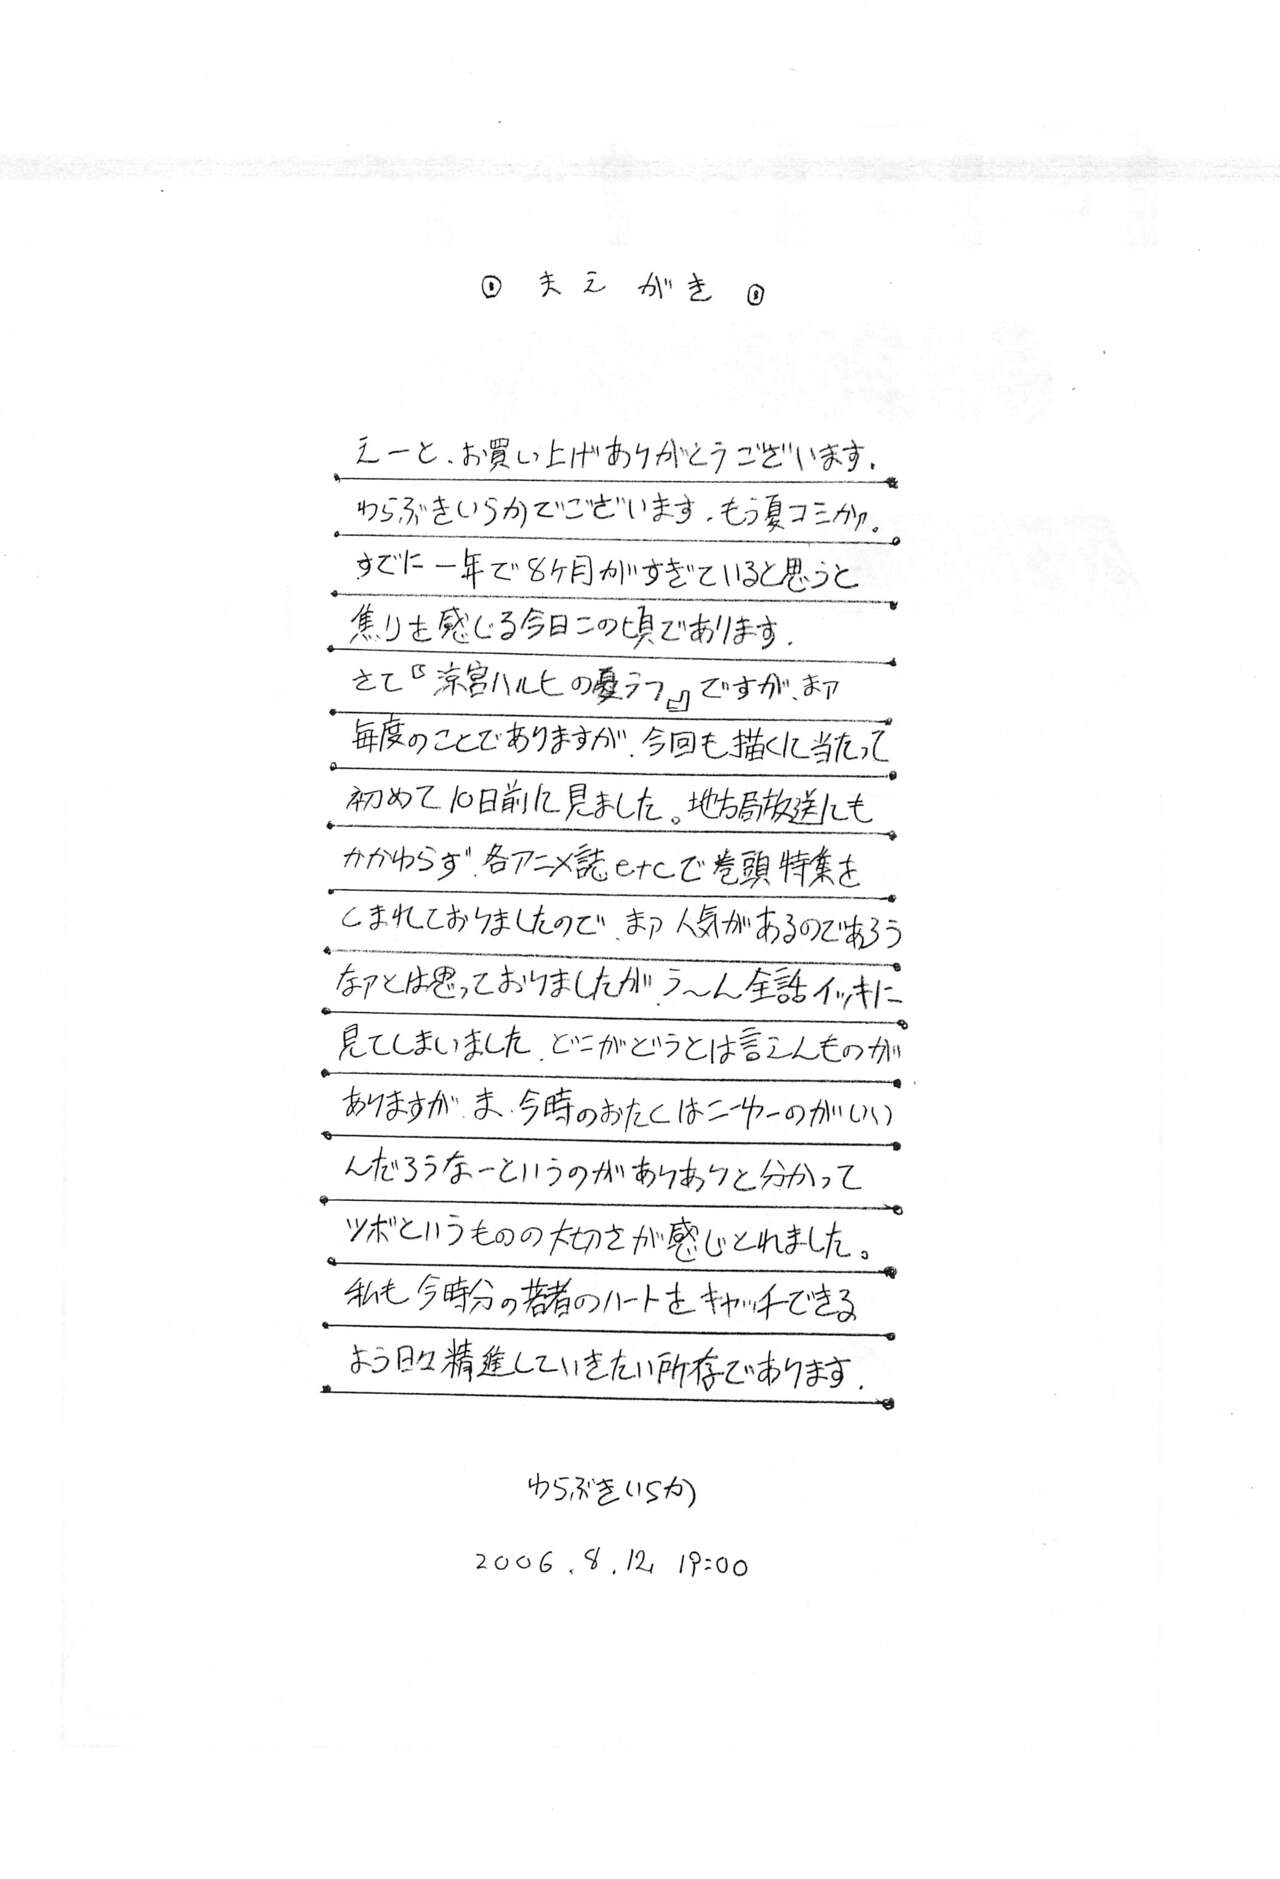 まえがき
えーと、お買い上げありがとうございます。
わらぶきいらかでございます。もう夏コミかァ。
すでに一年で8ケ月がすぎていると思うと
焦りを感じる今日この頃であります。
さて『涼宮ハルヒの憂うつ』ですが、まァ
毎度のことでありますが、今回も描くに当たって
初めて10日前に見ました。地方局放送にも
かかわらず、各アニメ誌etcで巻頭特集を
くまれておりましたので、まァ人気があるのであろう
なァとは思っておりましたが、う〜ん全話イッキに
見てしまいました。どこがどうとは言えんものが
ありますが、ま、今時のおたくはこーゆーのがいい
んだろうなーというのがありありと分かって
ツボというものの大切さが感じとれました。
私も今時分の若者のハートをキャッチできる
よう日々精進していきたい所存であります。
わらぶきいらか
2006.8.12 19:00